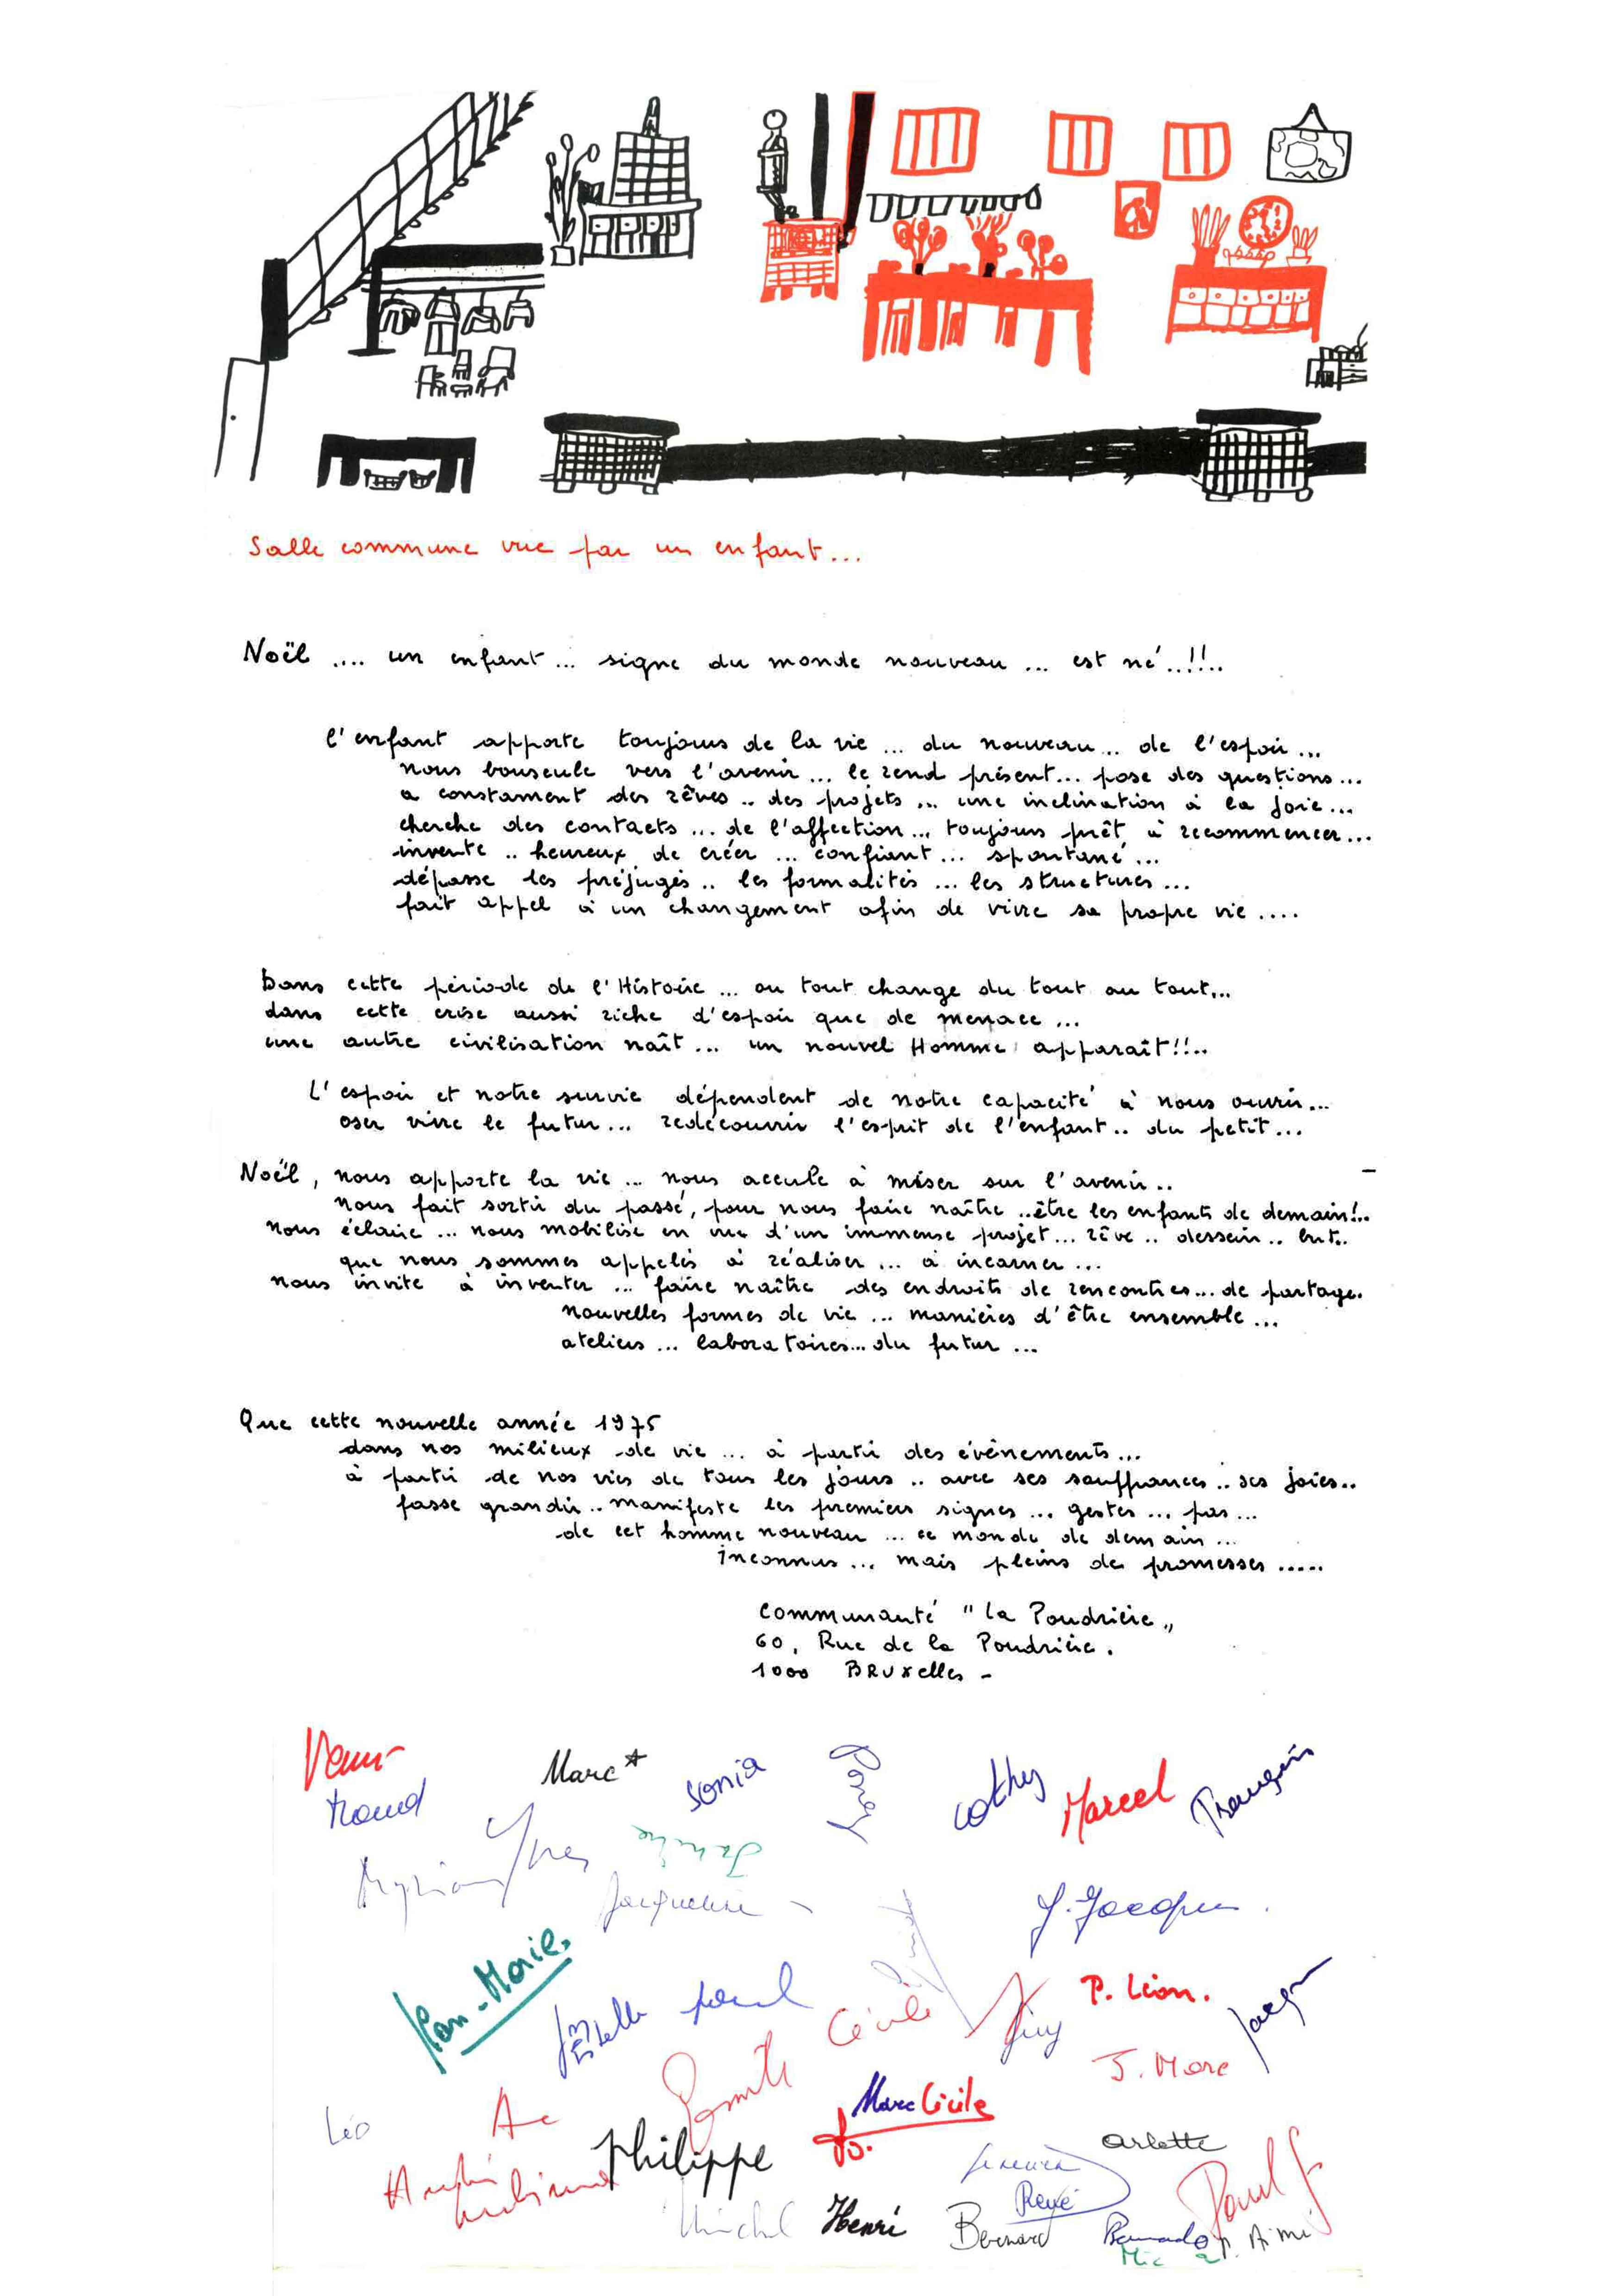 Salle commune vue par un enfant...
Noël .... un enfant... signe du monde nouveau ... est né..!!..
l'enfant apporte toujours de la vie ... du nouveau... de l'espoir ...
nous bouscule vers l'avenir ... le rend présent... pose des questions...
a constament des rêves .. des projets ... une inclination à la joie...
cherche des contacts ... de l'affection ... toujours prêt à recommencer...
invente .. heureux de créer ... confiant... spontané ...
dépasse les préjugés .. les formalités ... les structures ...
fait appel à un changement afin de vivre sa propre vie ....
Dans cette période de l'Histoire ... ou tout change du tout au tout...
dans cette crise aussi riche d'espoir que de menace ...
une autre civilisation naît ... un nouvel Homme apparaît!!..
L'espoir et notre survie dépendent de notre capacité à nous ouvrir...
oser vivre le futur ... redécouvrir l'esprit de l'enfant .. du petit ...
Noël, nous apporte la vie ... nous accule à miser sur l'avenir ..
nous fait sortir du passé, pour nous faire naître ..être les enfants de demain!..
nous éclaire ... nous mobilise en vue d'un immense projet ... rêve .. dessein .. but..
que nous sommes appelés à réaliser ... à incarner ...
nous invite à inventer ... faire naître des endroits de rencontres... de partage.
nouvelles formes de vie ... manières d'être ensemble ...
ateliers ... laboratoires... du futur ...
Que cette nouvelle année 1975
dans nos milieux de vie ... à partir des évènements...
à partir de nos vies de tous les jours .. avec ses souffrances .. ses joies..
fasse grandir .. manifeste les premiers signes ... gestes ... pas ...
de cet homme nouveau ... ce monde de demain ...
inconnus ... mais pleins de promesses .....
Communauté "La Poudrière"
60, Rue de la Poudrière.
1000 BRUxelles -
Marc Sonia Cathy Marcel François
Yves
Jacqueline
Jean-Marie. Paul Cécile Guy P. Léon.
J. Marc
Léo Marc Cécile
Philippe Arlette
Michel Henri Bernard René Paul